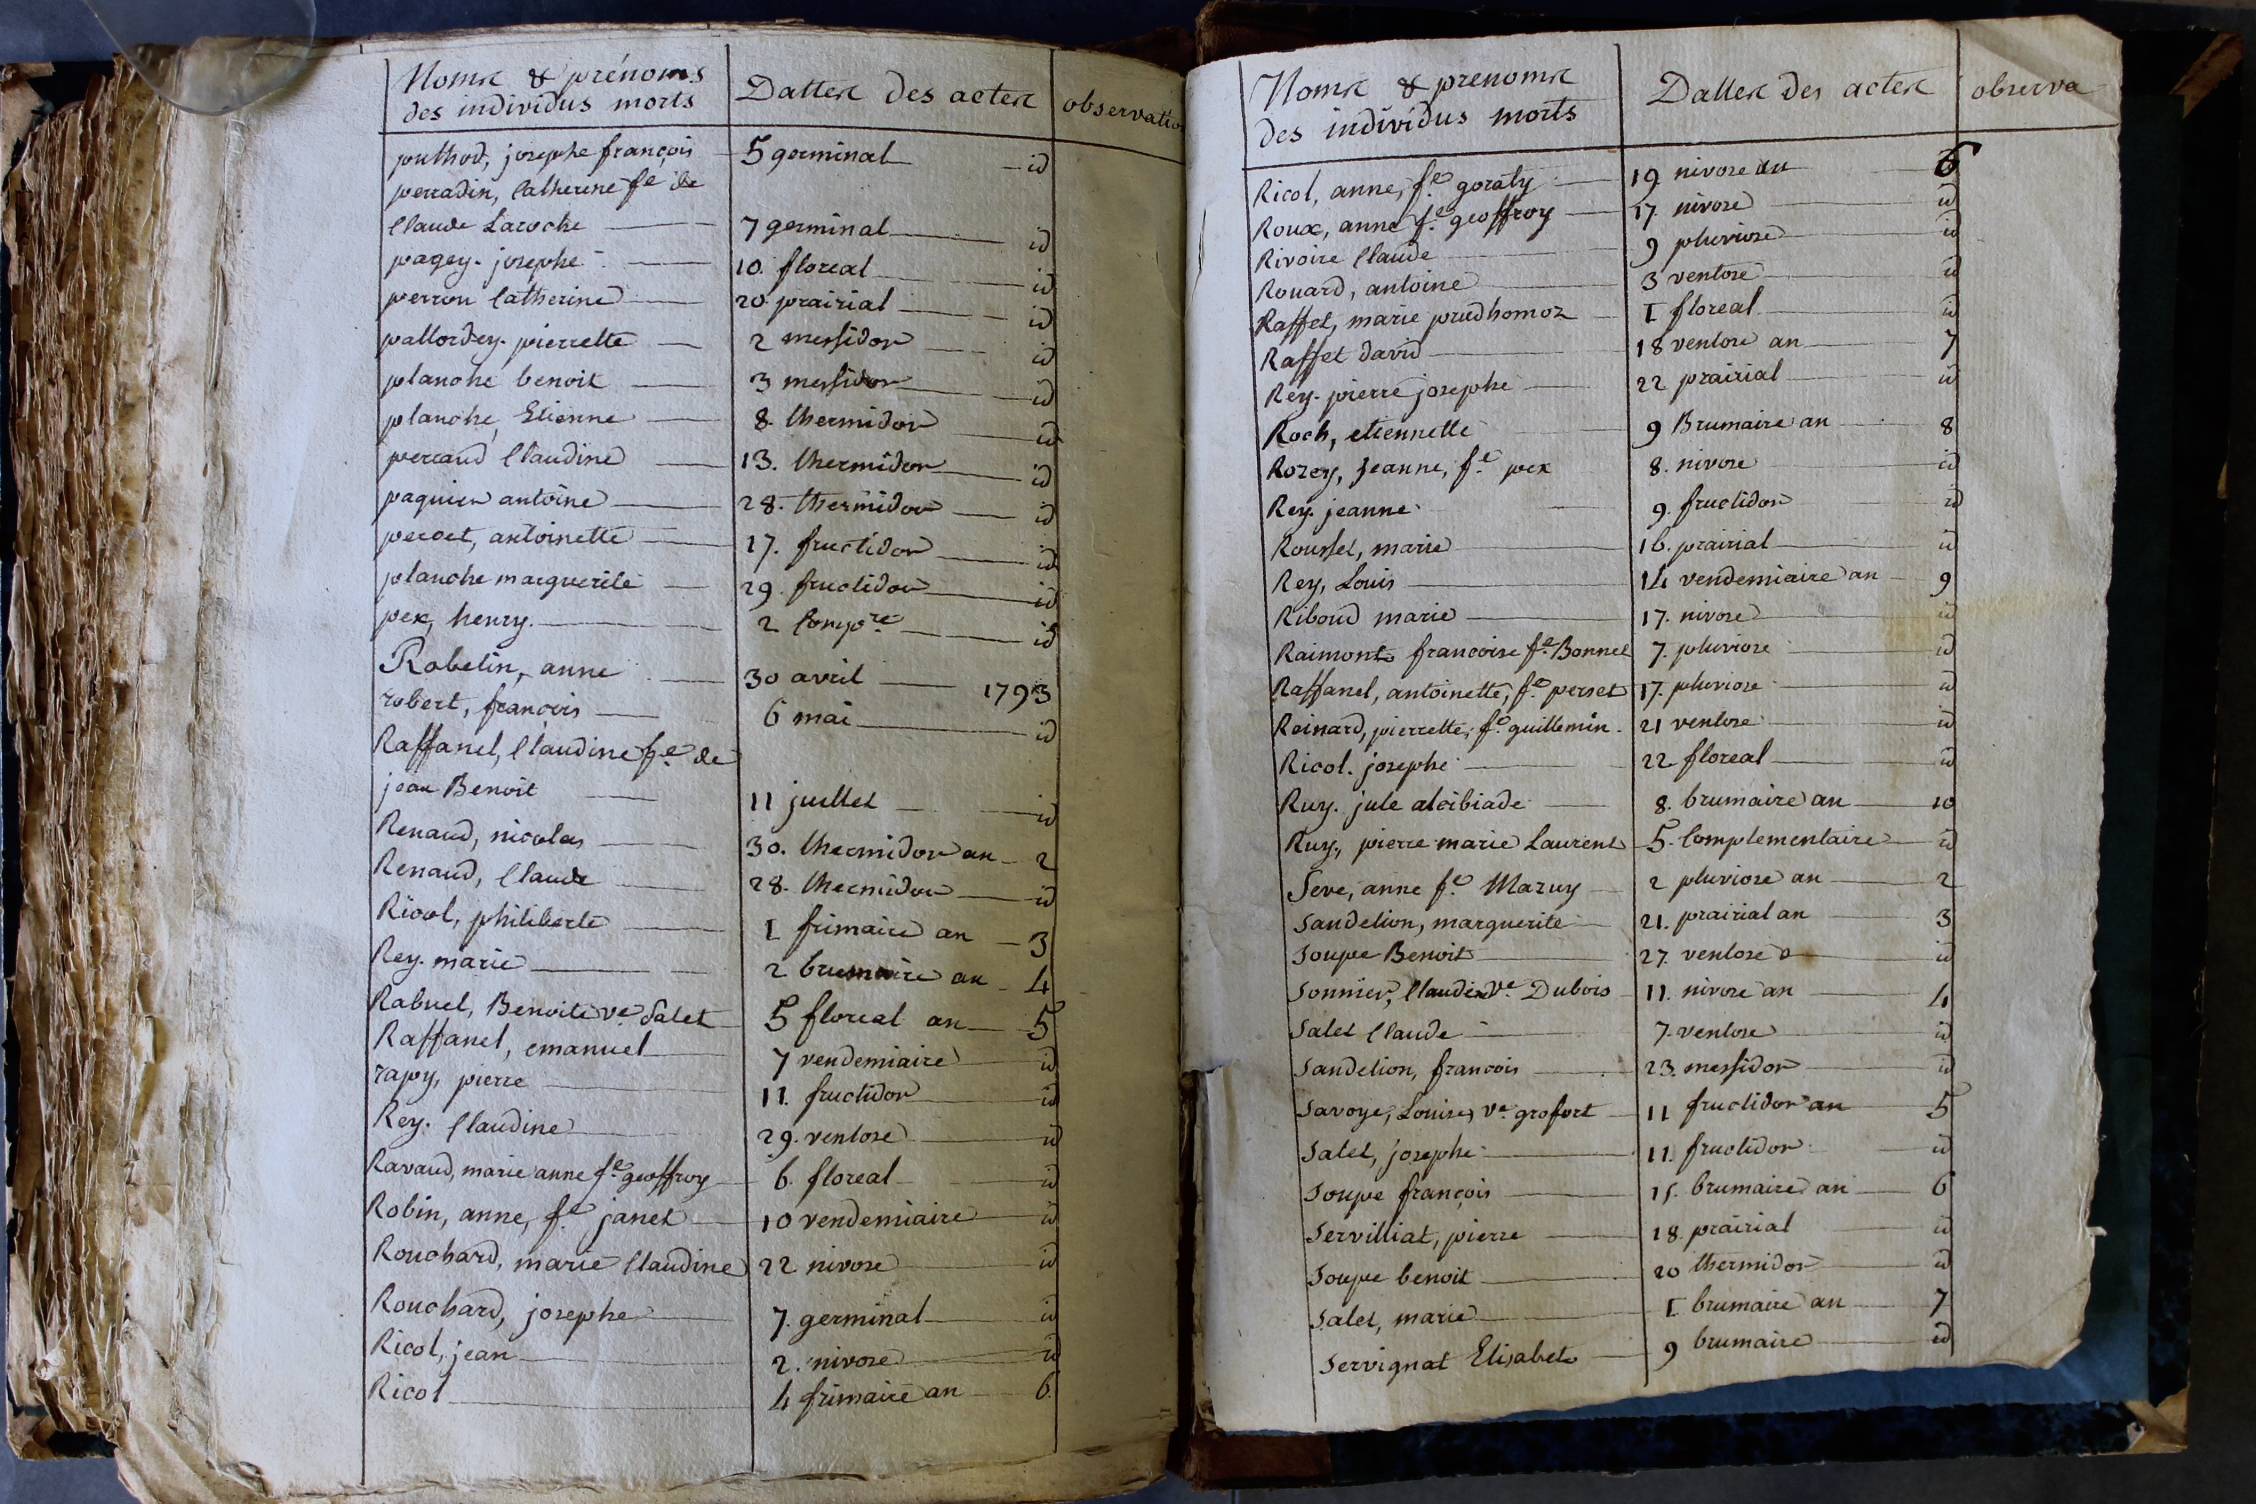 Noms & prénoms
des individus morts
Dattes des actes
observation
puthod, josephe françois 5 germinal id
perradin, Catherine fe de
Claude Laroche 7 germinal id
pagey. josephe 10. floreal id
perron Catherine 20 prairial id
pallordey. pierrette 2 messidor id
planche benoit 3 messidor id
planche, Etienne 8. thermidor id
perraud Claudine 13. thermidor id
paquier antoine 28. thermidor id
percet, antoinette 17. fructidor id
planche marguerite 29. fructidor id
pex, henry. 2 Compre id
Robelin, anne 30 avril 1793
robert, françois 6 mai id
Raffanel, Claudine fe de
jean Benoit 11 juillet id
Renaud, nicolas 30. thermidor an 2
Renaud, Claude 28. thermidor id
Ricol, philiberte 1 frimaire an 3
Rey. marie 2 brumaire an 4
Rabuel, Benoite ve Salet 5 floreal an 5
Raffanel, emanuel 7 vendemiaire id
rapy, pierre 11. fructidor id
Rey. Claudine 29. ventose id
Ravaud, marie anne fe geoffroy 6. floreal id
Robin, anne, fe janet 10 vendemiaire id
Rouchard, marie Claudine 22 nivose id
Rouchard, josephe 7. germinal id
Ricol, jean 2. nivose id
Ricol 4 frimaire an 6.
Noms & prenoms
des individus morts
Dattes des actes
observa
Ricol, anne, fe goraty 19 nivose an 6
Roux, anne fe geoffroy 17. nivose id
Rivoire Claude 9 pluviose id
Rouard, antoine 3 ventose id
Raffet, marie prudhomoz 1 floreal id
Raffet david 18 ventose an 7
Rey. pierre josephe 22 prairial id
Roch, etiennette 9 Brumaire an 8
Rozey, Jeanne, fe pex 8. nivose id
Rey. jeanne 9. fructidor id
Rousset, marie 16. prairial id
Rey, Louis 14 vendemiaire an 9
Riboud marie 17. nivose id
Raimont francoise fe Bonnet 7. pluviose id
Raffanel, antoinette, fe perset 17. pluviose id
Reinard, pierrette, fe guillemin. 21 ventose id
Ricol. josephe 22 floreal id
Ruy. jule alcibiade 8. brumaire an 10
Ruy, pierre marie Laurent 5. Complementaire id
Seve, anne fe Mazuy 2 pluviose an 2
Sandelion, marguerite 21. prairial an 3
Soupe Benoit 27 ventose id
Sonnier, Claudine ve Dubois 11. nivose an 4
Salet Claude 7. ventose id
Sandelion, francois 23. messidor id
Savoye, Louise, ve grofort 11 fructidor an 5
Salet, josephe 11. fructidor id
Soupe françois 15. brumaire an 6
Servilliat, pierre 18. prairial id
Soupe benoit 20 thermidor id
Salet, marie 1 brumaire an 7
Servignat Elisabet 9 brumaire id